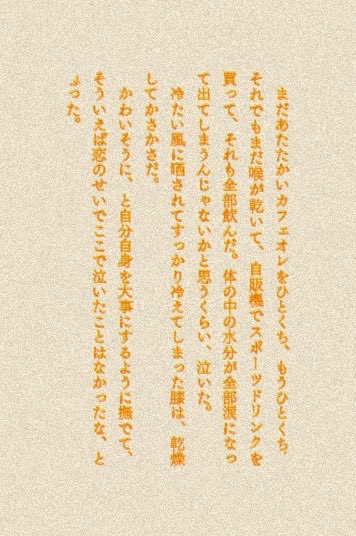 まだあたたかいカフェオレをひとくち、もうひとくち。
それでもまだ喉が乾いて、自販機でスポーツドリンクを
買って、それも全部飲んだ。体の中の水分が全部涙になっ
て出てしまうんじゃないかと思うくらい、泣いた。
冷たい風に晒されてすっかり冷えてしまった膝は、乾燥
してかさかさだ。
かわいそうに、と自分自身を大事にするように撫でて、
そういえば恋のせいでここで泣いたことはなかったな、と
よった。